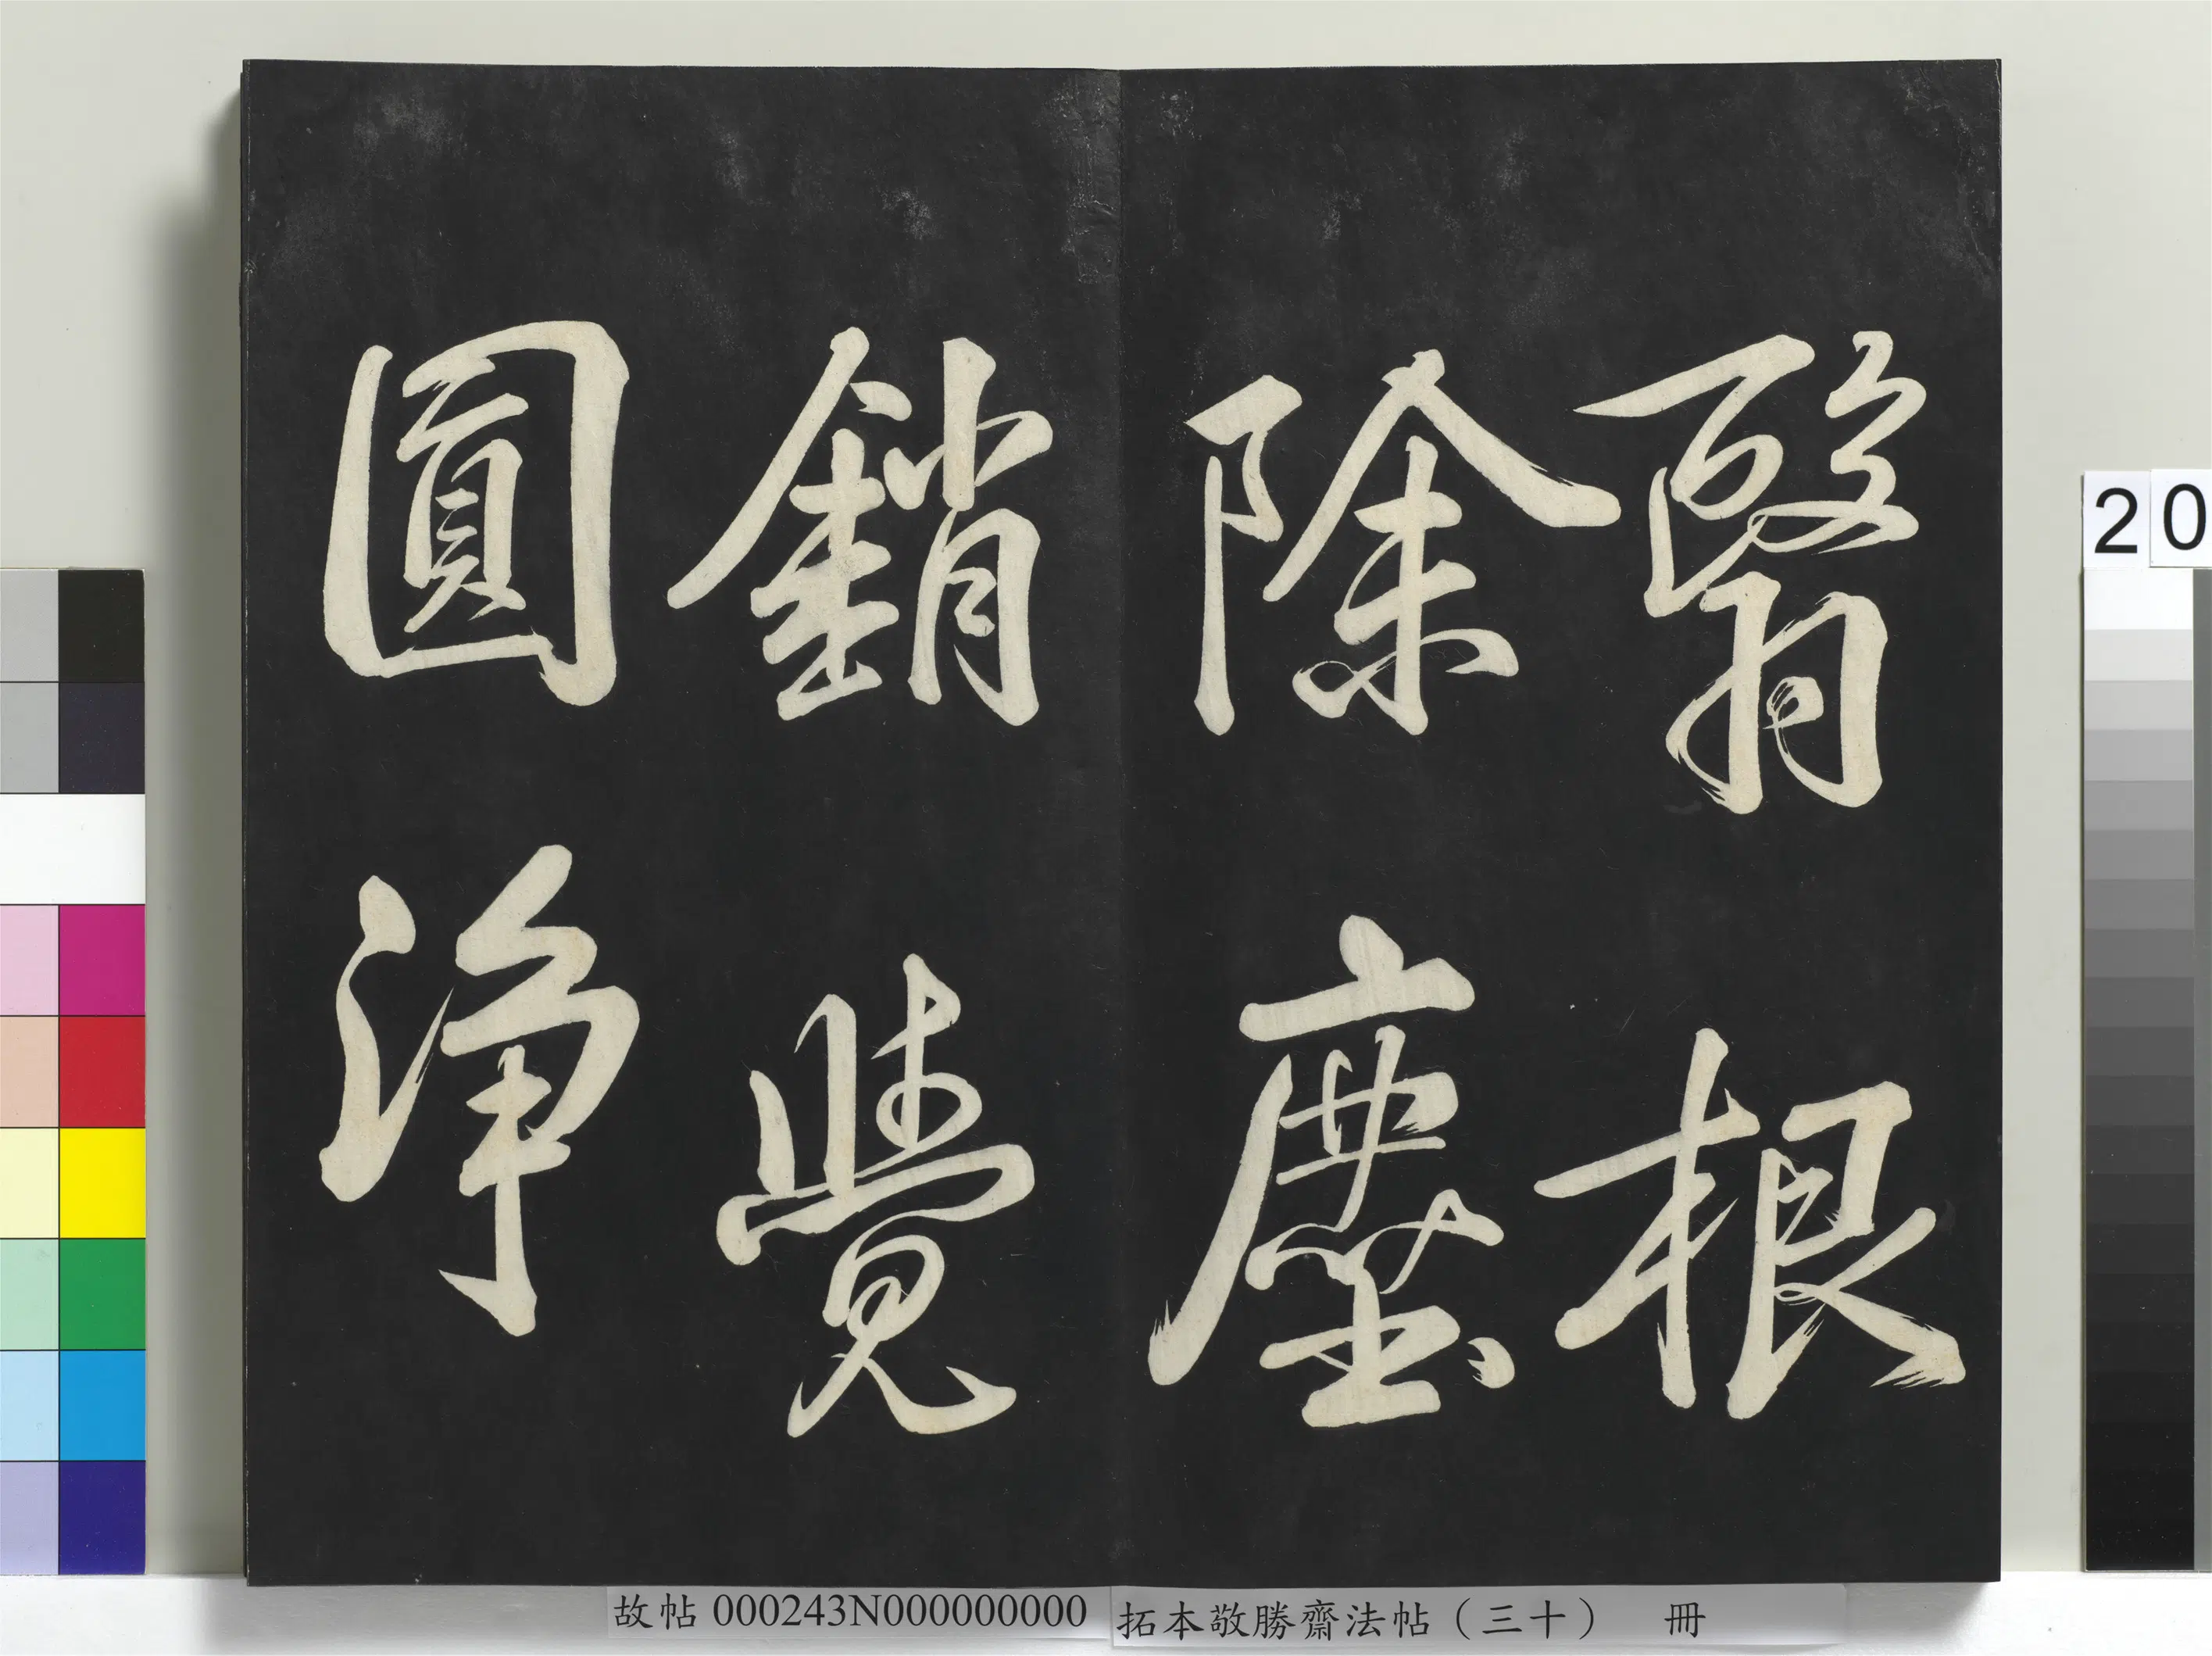 翳根
除塵
銷覺
圓淨
20
故帖 000243N000000000
拓本敬勝齋法帖（三十） 冊